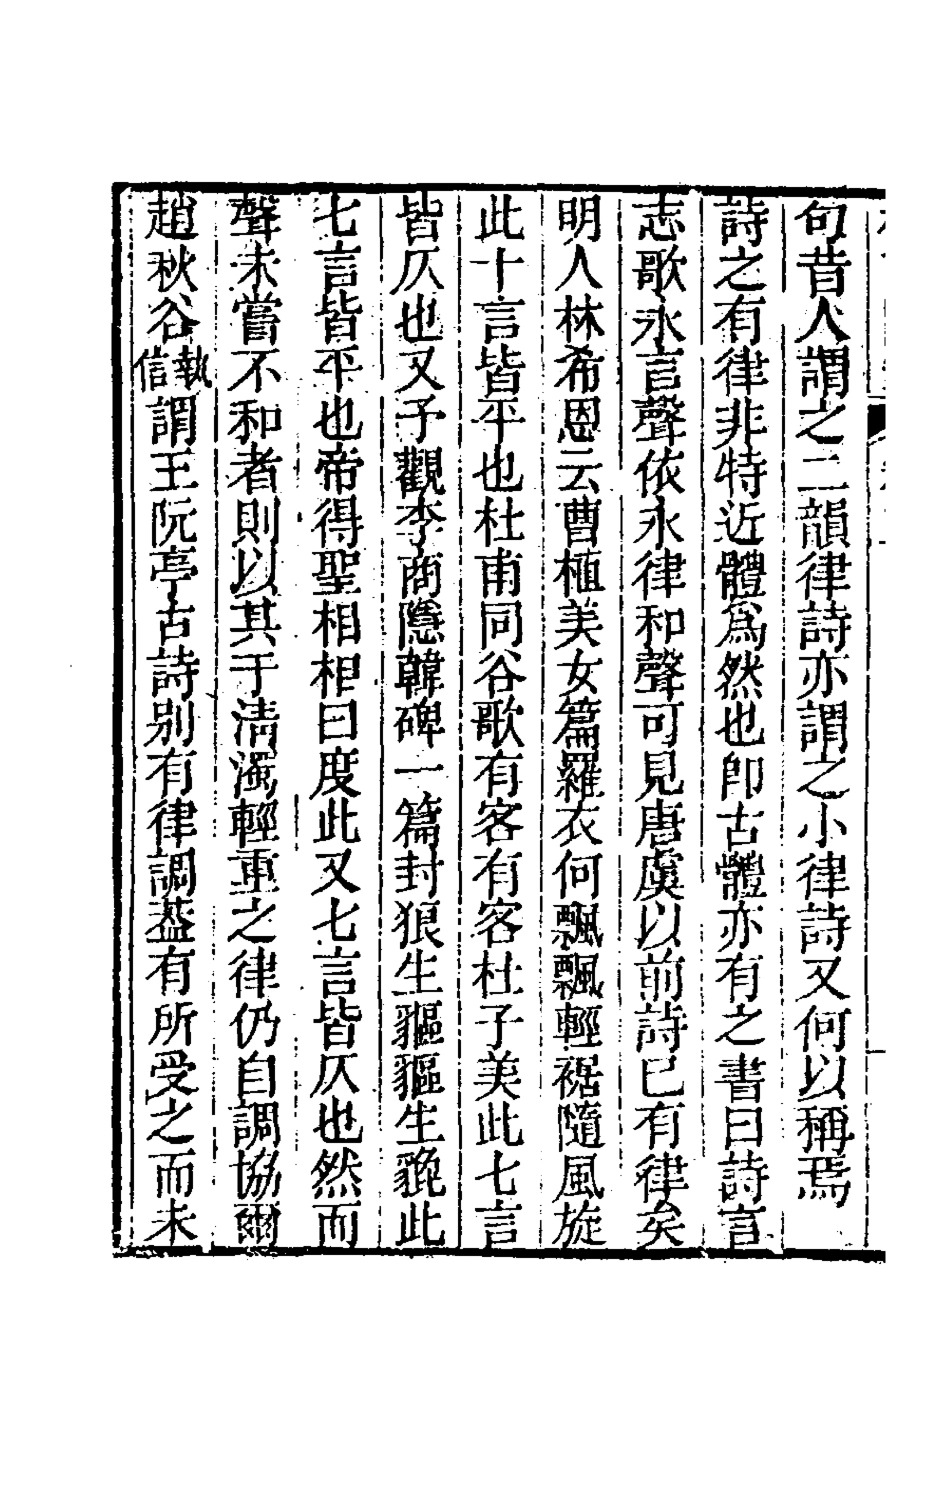 句昔人謂之二韻律詩亦謂之小律詩又何以稱焉
詩之有律非特近體爲然也卽古體亦有之書曰詩言
志歌永言聲依永律和聲可見唐虞以前詩已有律矣
明人林希恩云曹植美女篇羅衣何飄飄輕裾隨風旋
此十言皆平也杜甫同谷歌有客有客杜子美此七言
皆仄也又予觀李商隱韓碑一篇封狼生貙貙生貔此
七言皆平也帝得聖相相曰度此又七言皆仄也然而
聲未嘗不和者則以其于淸濁輕重之律仍自調協爾
趙秋谷執信謂王阮亭古詩别有律調葢有所受之而未